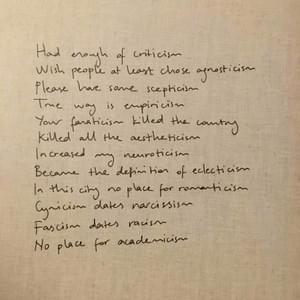 Had enough of criticism
Wish people at least chose agnosticism
Please have some scepticism
True way is empiricism
Your fanaticism killed the country
Killed all the aestheticism
Increased my neuroticism
Became the definition of eclecticism
In this city no place for romanticism
Cynicism dates narcissism
Fascism dates racism
No place for academicism